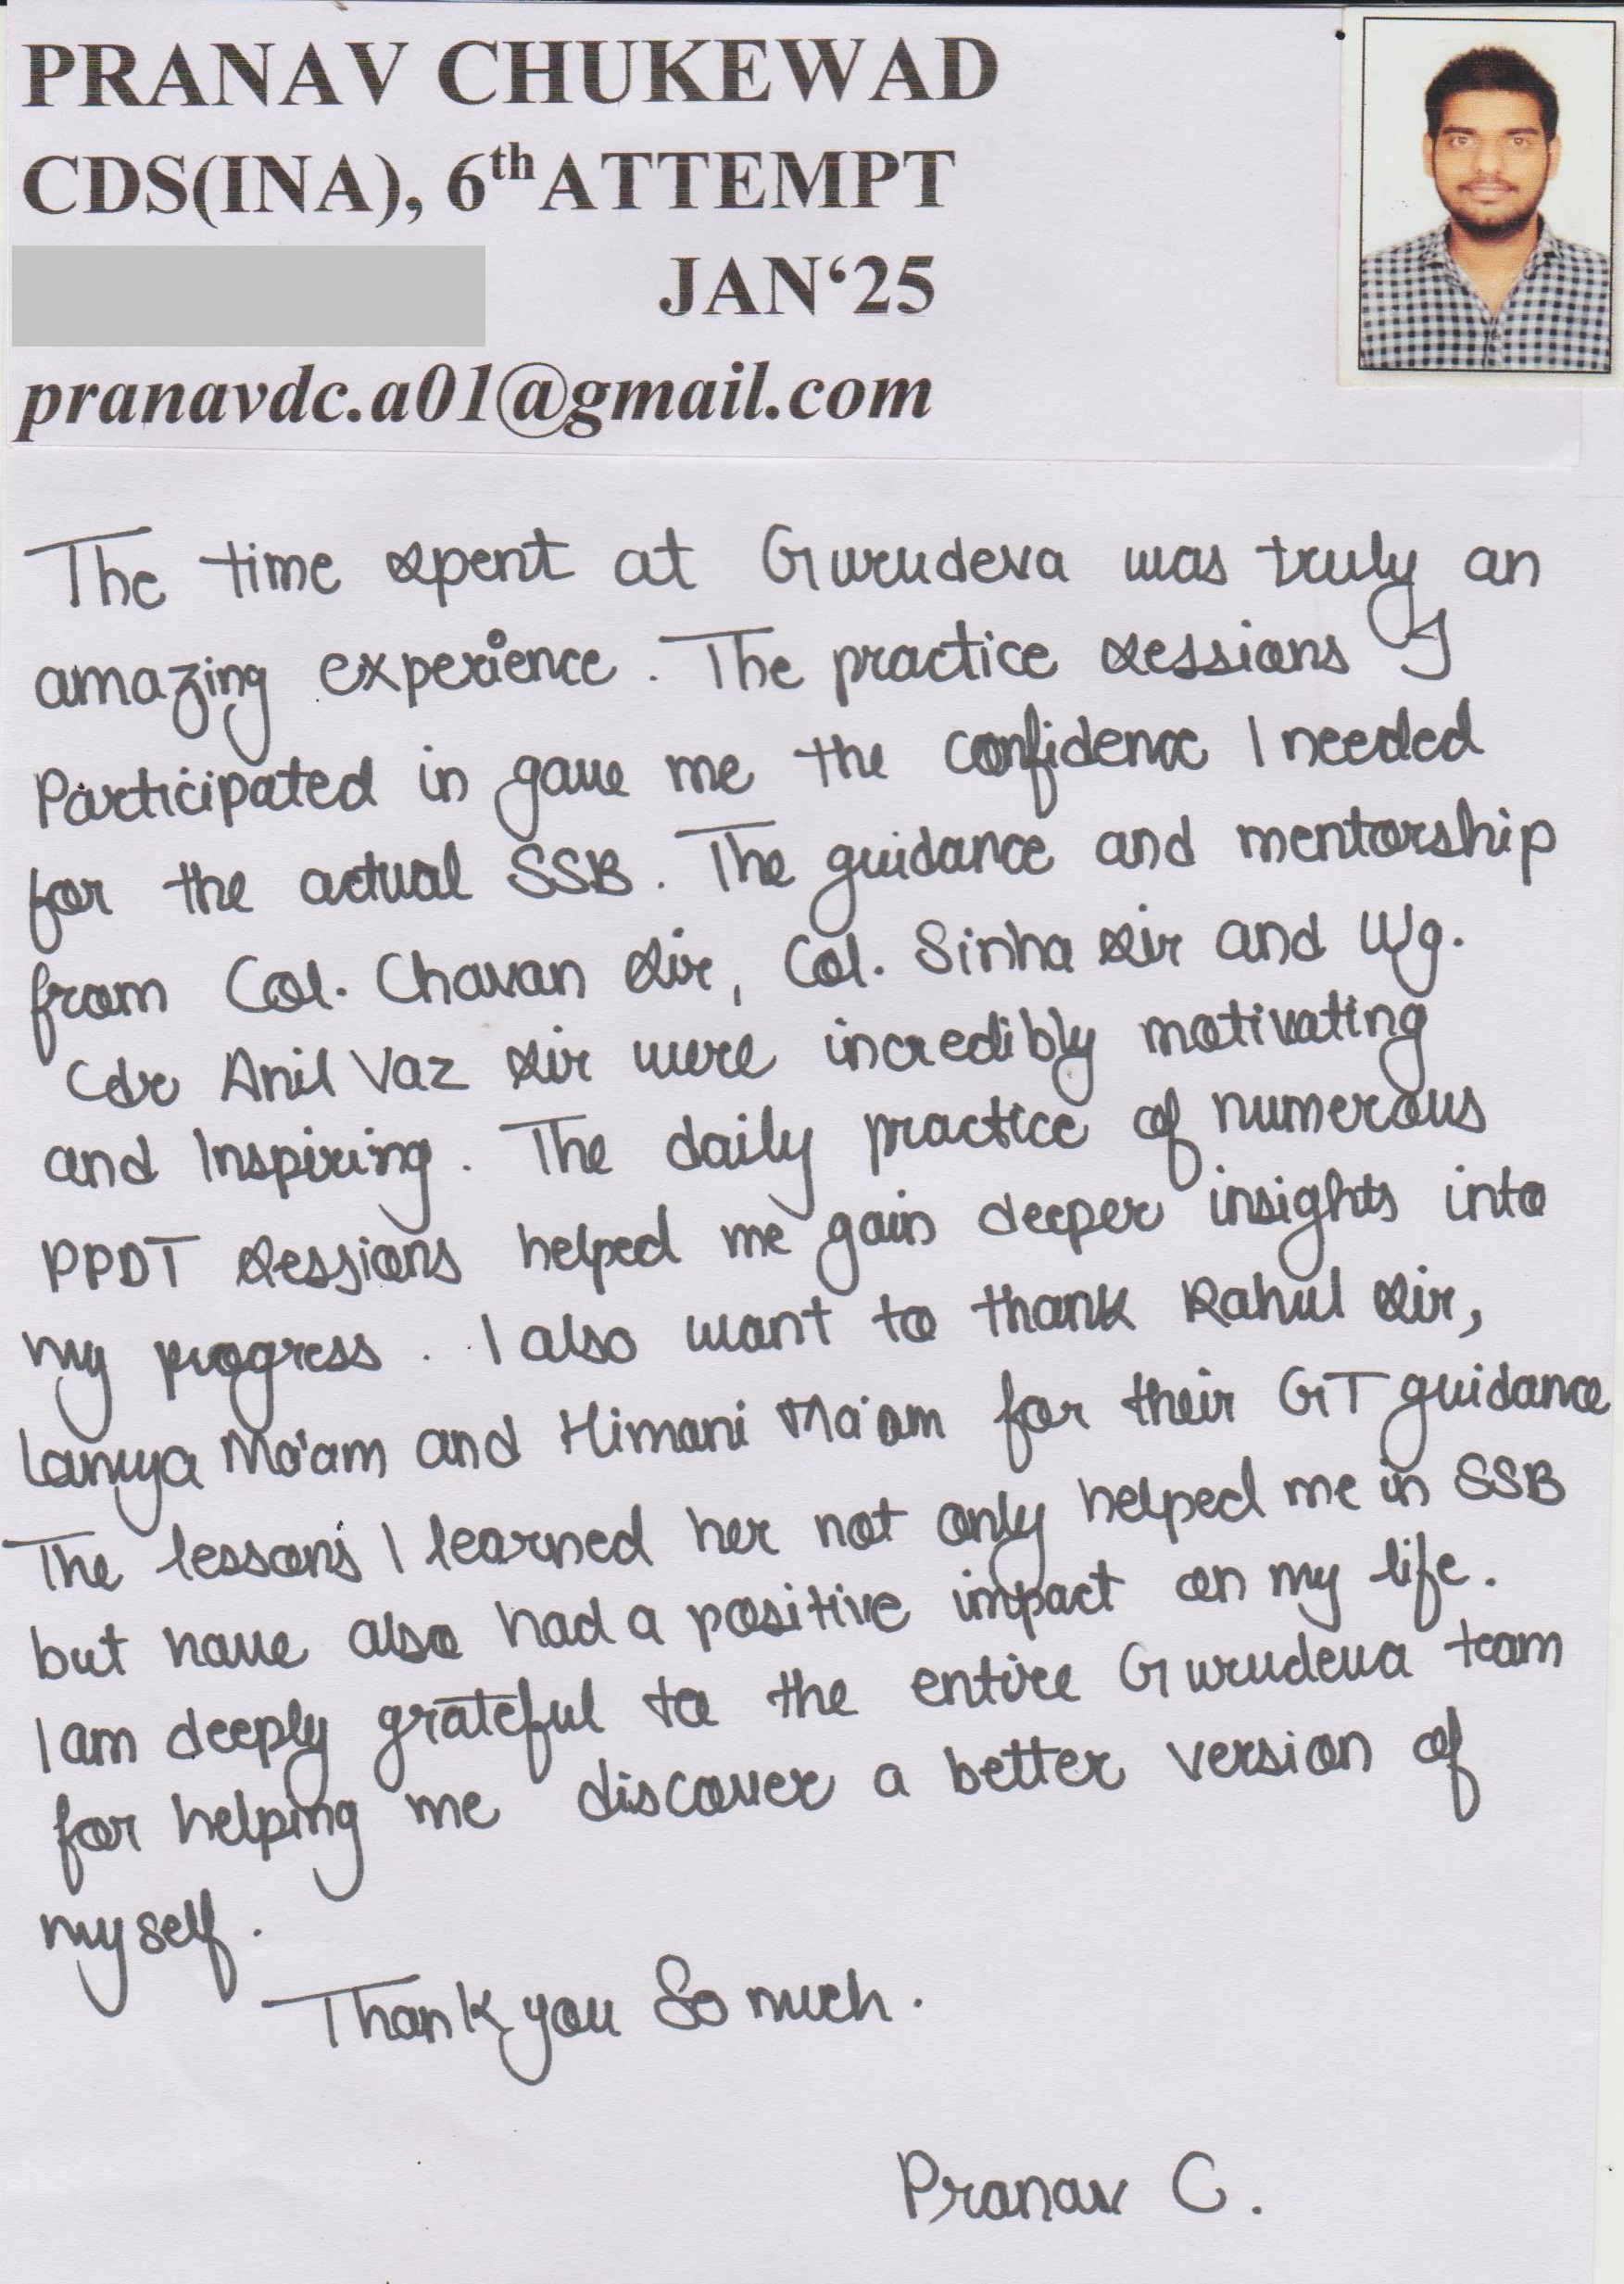 PRANAV CHUKEWAD
CDS(INA), 6th ATTEMPT
JAN‘25
pranavdc.a01@gmail.com
The time spent at Gurudeva was truly an
amazing experience. The practice sessions I
Participated in gave me the confidence I needed
for the actual SSB. The guidance and mentorship
from Col. Chavan sir, Col. Sinha sir and Wg.
Cdr Anil Vaz sir were incredibly motivating
and Inspiring. The daily practice of numerous
PPDT sessions helped me gain deeper insights into
my progress. I also want to thank Rahul sir,
Lanya Ma'am and Himani Ma'am for their GT guidance
The lessons I learned her not only helped me in SSB
but have also had a positive impact on my life.
I am deeply grateful to the entire Gurudeva team
for helping me discover a better version of
myself.
Thank you So much.
Pranav C.